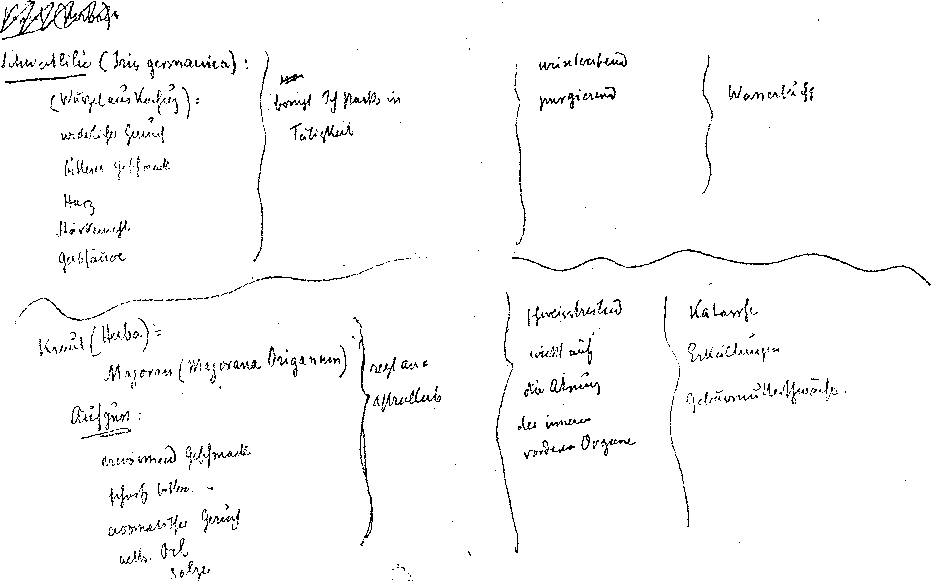 Schwertlilie (Iris germanica):
(Wurzelauskochung):
widerlicher Geruch
bitterer Geschmack
Harz
Stärkemehl
Gerbsäure
bringt Ich stark in
Tätigkeit
urintreibend
purgierend
Wassersucht
Kraut (Herba):
Majoran (Majorana Origanum)
Aufguss:
erwärmend Geschmack
schwach bitter.
aromatischer Geruch
aeth. Oel
Salze
regt an
astralleib
schweisstreibend
wirkt auf
die Atmung
der inneren
vorderen Organe
Katarrhe
Erkältungen
Gebärmutterschwäche.